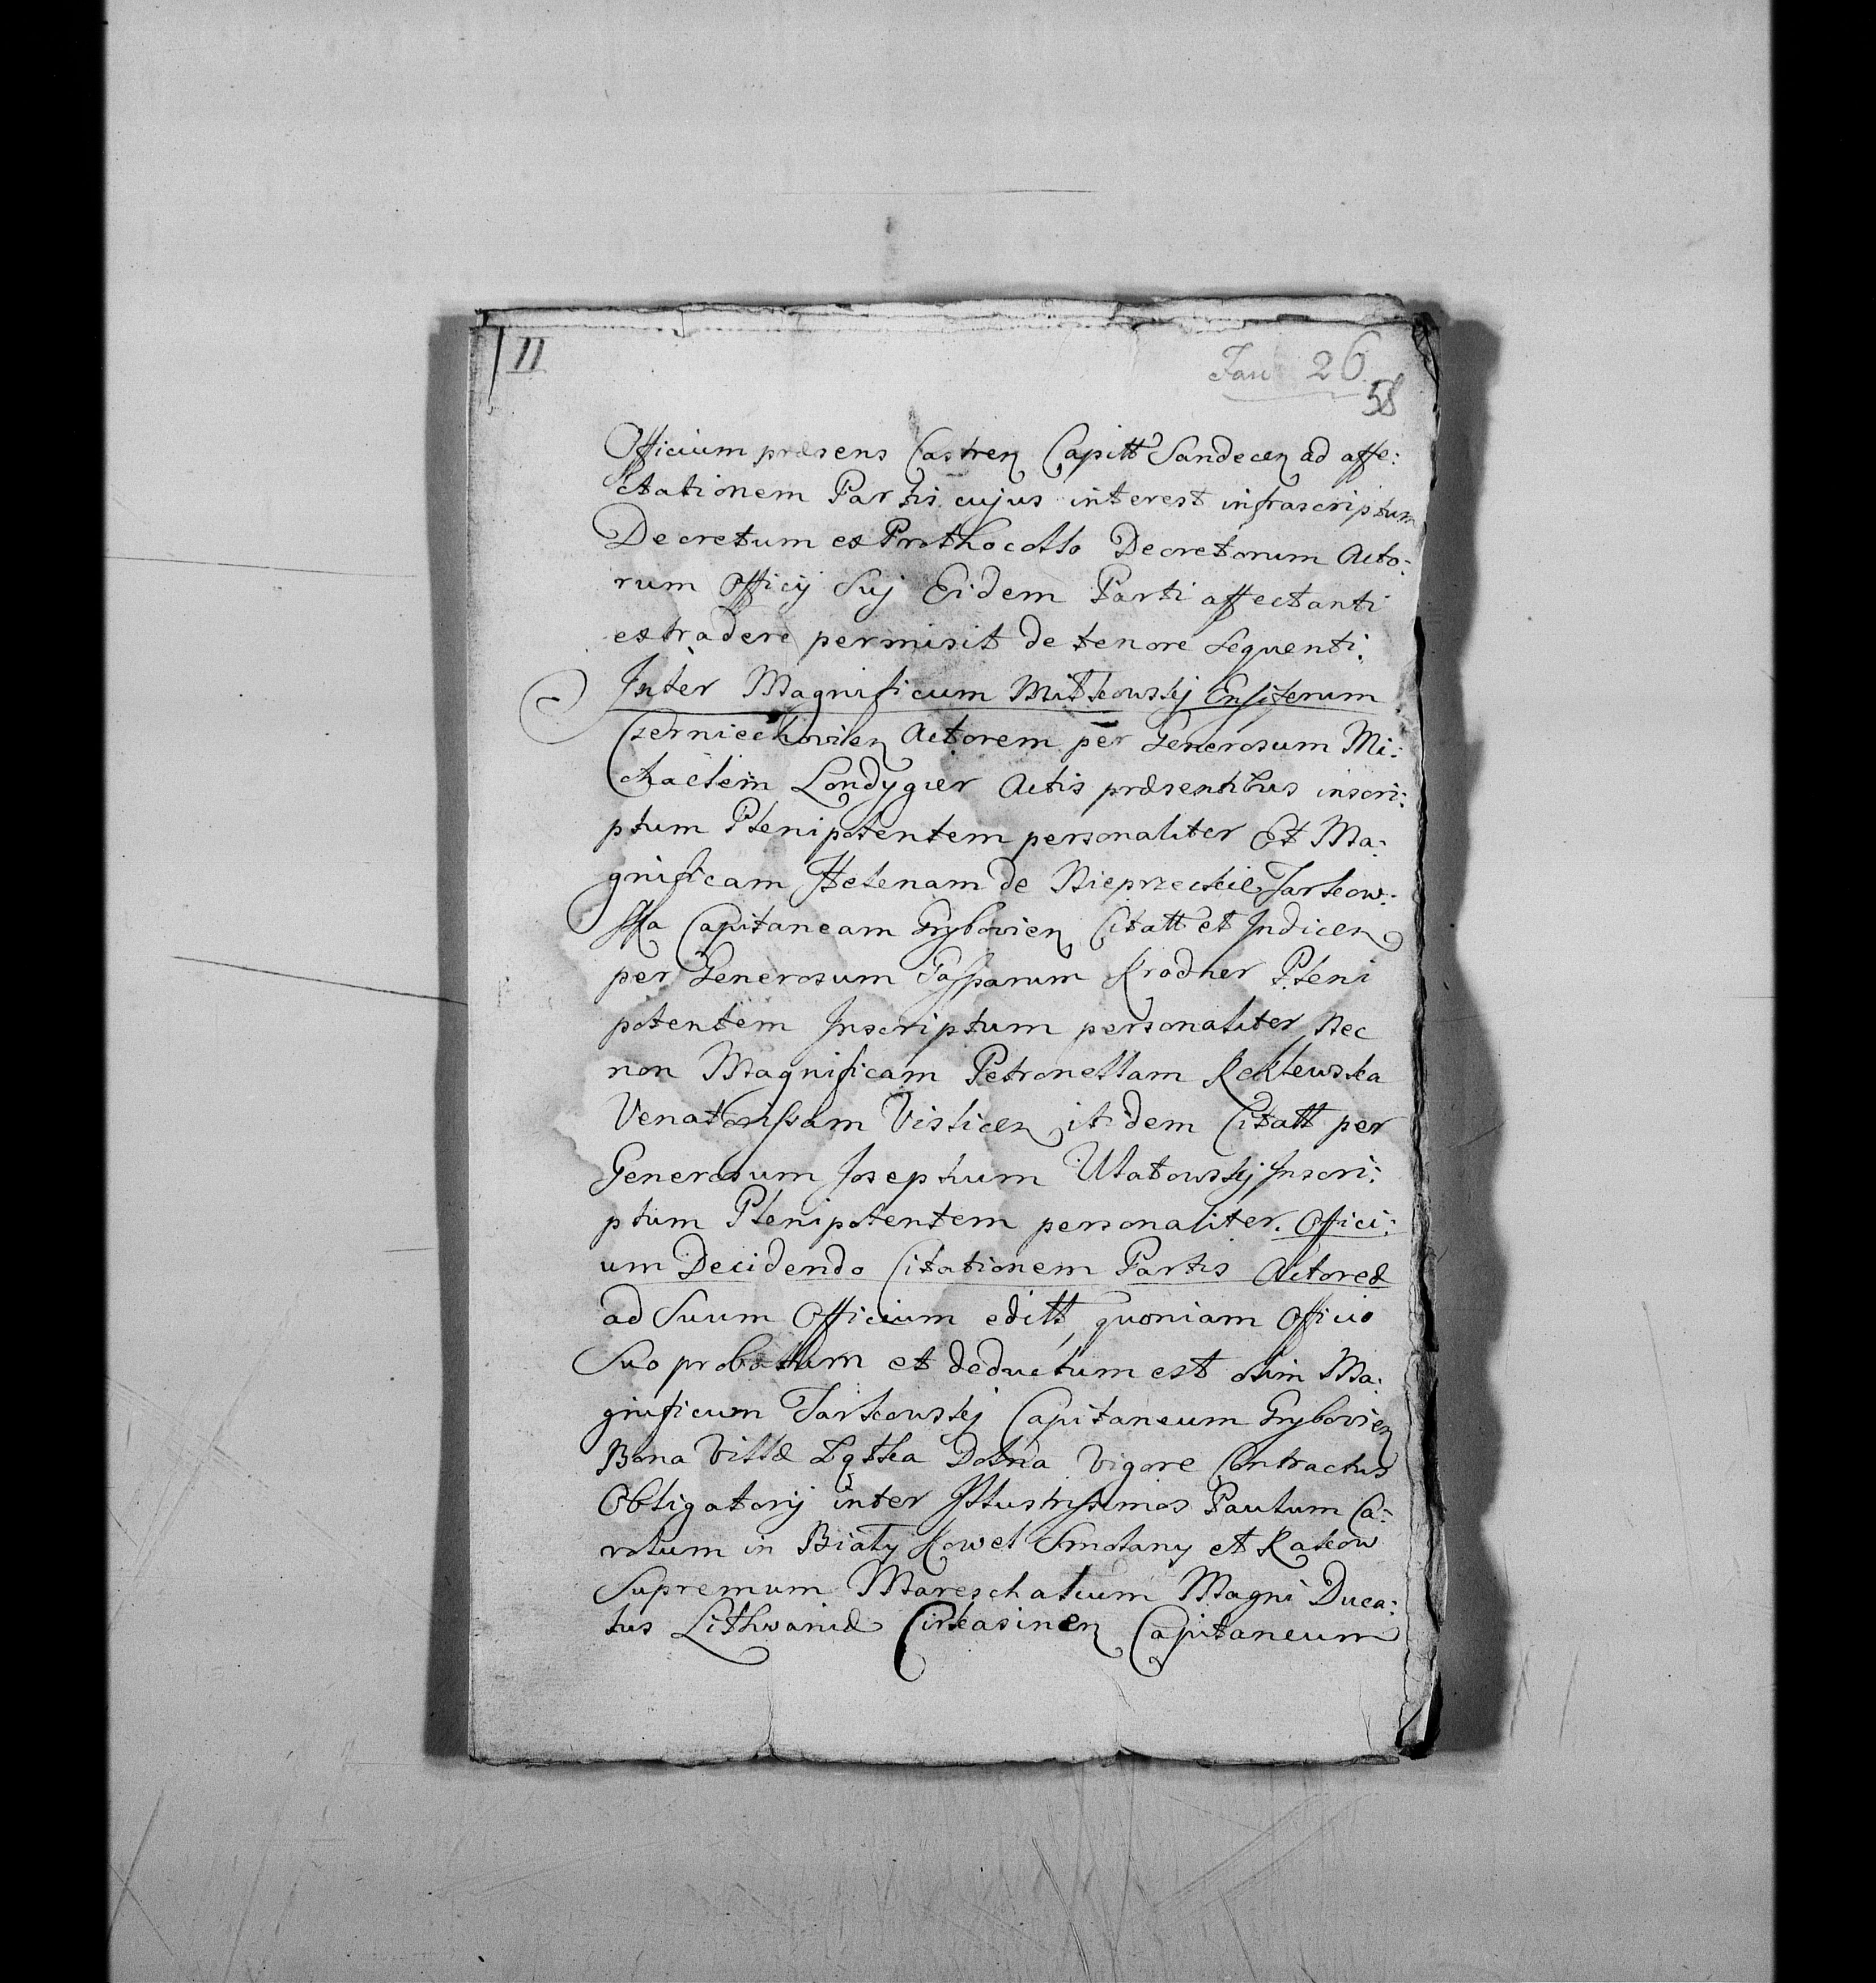 11
Jan 26
58
Officium præsens Castren Capitt Sandecen ad affe:
ctationem Partis cujus interest infrascriptum
Decretum ex Prothocollo Decretorum Acto:
rum Officij Suj Eidem Parti affectanti
extradere permisit de tenore sequenti:
Inter Magnificum Miłkowskj Ensiferum
Czerniechovien Actorem per Generosum Mi:
chaelem Londygier Actis præsentibus inscri:
ptum Plenipotentem personaliter Et Ma:
gnificam Helenam de Nieprzeckie Jarkow:
ska Capitaneam Grybovien Citatt et Indicen
per Generosum Casparum Kradner Pleni
potentem Inscriptum personaliter Nec
non Magnificam Petronellam Reklewska
Venatorissam Vislicen itidem Citatt per
Generosum Josephum Ulatowskj Inscri:
ptum Plenipotentem personaliter. Offici:
um Decidendo Citationem Partis Actoreæ
ad Suum Officium editt, quoniam Officio
Suo probatum et deductum est olim Ma:
gnificum Jarkowskj Capitaneum Grybovien
Bona Villæ Łąţka Dolna Vigore Contractus
Obligatorij inter Illustrissimos Paulum Ca:
rolum in Biały Kowel Smolany et Rakow
Supremum Mareschalcum Magni Duca:
tus Lithvaniæ Cirkasinen Capitaneum